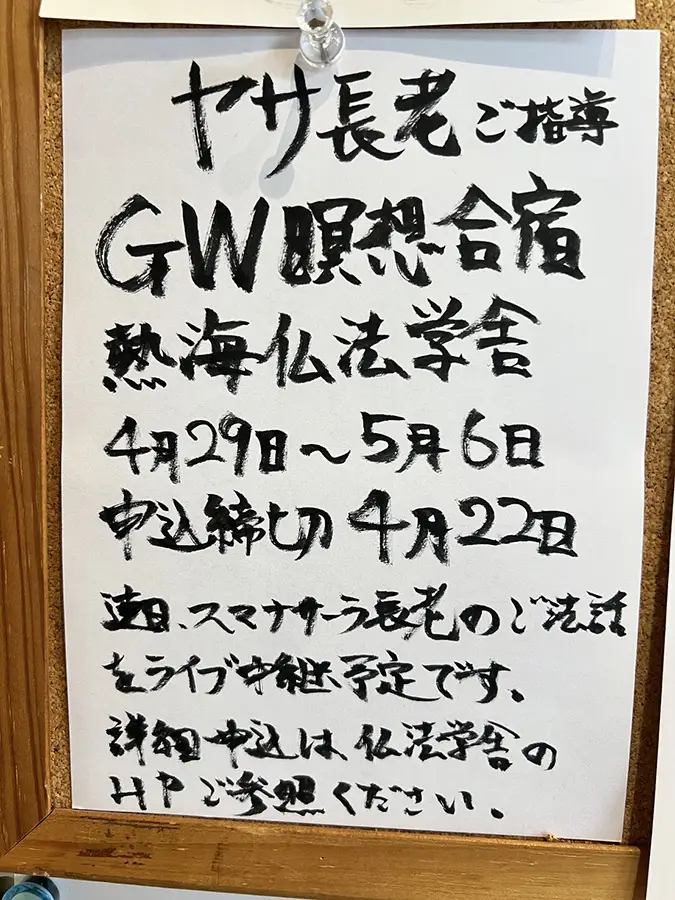 ヤサ長老ご指導
GW瞑想合宿
熱海仏法学舎
4月29日〜5月6日
申込締切 4月22日
連日、スマナサーラ長老のご法話
をライブ中継予定です。
詳細・申込は、仏法学舎の
HPご参照ください。